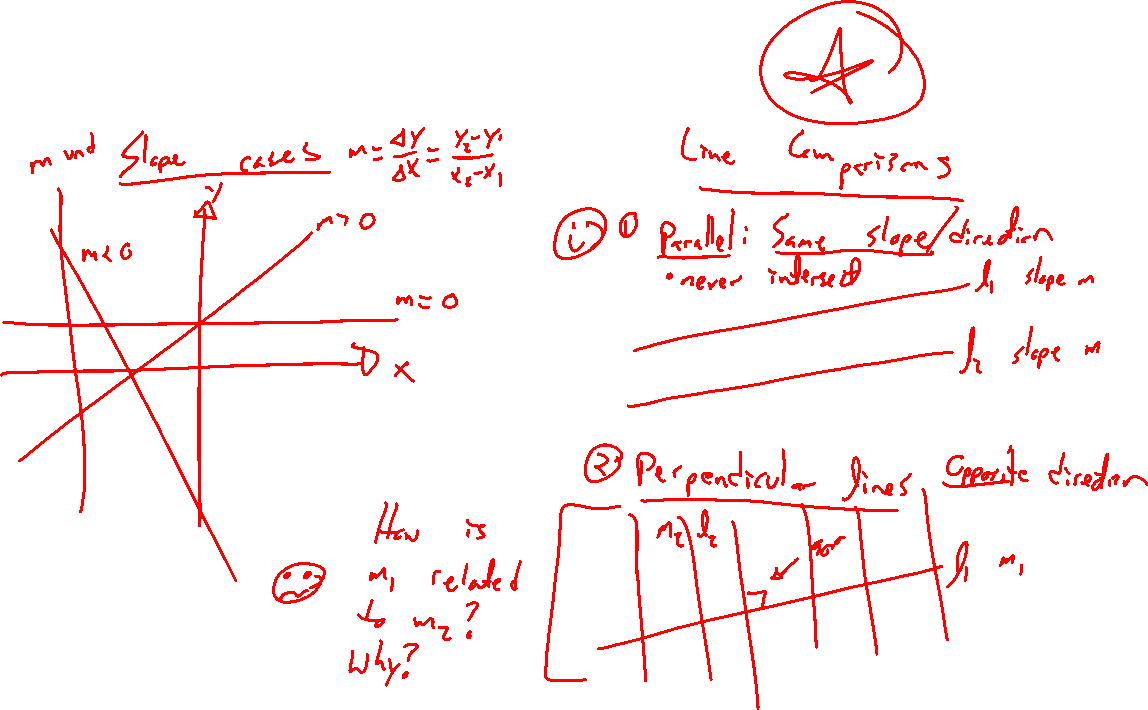 A
m und Slope cases m = ΔY/ΔX = (Y₂-Y₁)/(X₂-X₁)
Y
m > 0
m < 0
m = 0
X
Line Comparisons
① Parallel: Same slope/direction
• never intersect
l₁ slope m
l₂ slope m
② Perpendicular lines Opposite direction
m₂ l₂
90°
l₁ m₁
How is
m₁ related
to m₂?
Why?